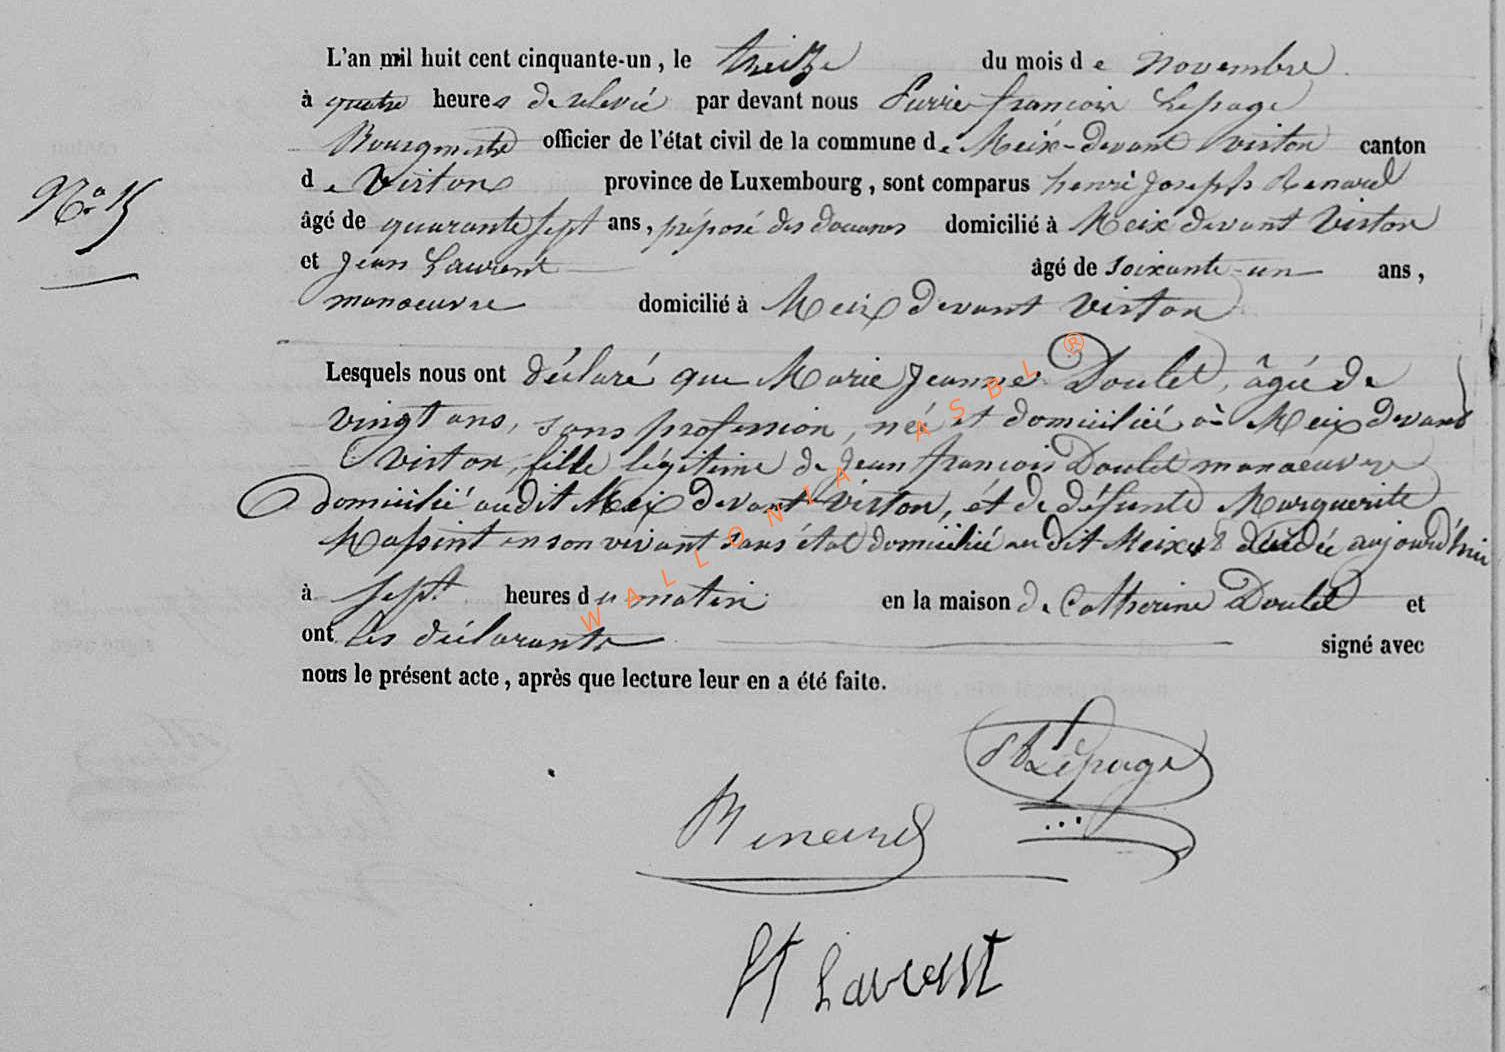 L'an mil huit cent cinquante-un, le treize du mois de novembre
à quatre heures de relevée par devant nous Pierre françois Lepage
Bourgmestre officier de l'état civil de la commune de Meix-devant virton canton
de Virton province de Luxembourg, sont comparus henri Joseph Renard
N° 15
âgé de quarante sept ans, préposé des douanes domicilié à Meix devant Virton
et Jean Laurent âgé de soixante-un ans,
manoeuvre domicilié à Meix devant virton
Lesquels nous ont déclaré que Marie Jeanne Doulet, âgée de
vingt ans, sans profession, née et domiciliée à Meix devant
virton, fille légitime de Jean françois Doulet manoeuvre
domicilié audit Meix devant virton, et de défunte Marguerite
Massint en son vivant sans état domiciliée au dit Meix décédée aujourd'hui
à sept heures du matin en la maison de Catherine Doulet et
ont les déclarants signé avec
nous le présent acte, après que lecture leur en a été faite.
Lepage
Renard
Laurent
WALLONIA ASBL ®